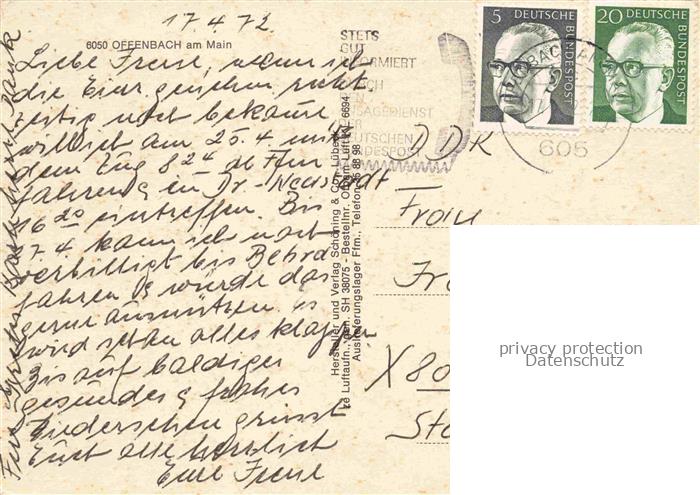 17.4.72
6050 OFFENBACH am Main
Liebe Freue, wenn ich
die Einreise recht
zeitig noch bekomme
will ich am 25.4 mit
dem Zug 8 24 ab Ffm.
fahren & in Dr.-Neustadt
16 20 eintreffen. Bis
7.4 kann ich noch
verbilligt bis Bebra
fahren & würde das
gerne ausnützen. Es
wird schon alles klappen
Bis auf baldiges
gesundes & frohes
Wiedersehen grüsst
Euch alle herzlich
Eure
STETS
GUT
INFORMIERT
DURCH
DEN
ANSAGEDIENST
DER
DEUTSCHEN
BUNDESPOST
5 DEUTSCHE
BUNDESPOST
20 DEUTSCHE
BUNDESPOST
605
DDR
Frau
Fr
X 80
Hersteller und Verlag Schöning & Co., Lübeck
Luftaufn., gen. SH 38075 - Bestellnr. Offenb.-Luft KL 6694
Auslieferungslager Ffm., Telefon 55 88 98
privacy protection
Datenschutz